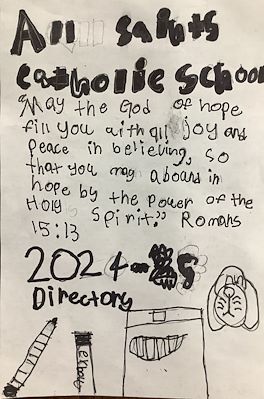 All saints
catholic school
"May the God of hope
fill you with all joy and
peace in believing, so
that you may abound in
hope by the power of the
Holy Spirit." Romans
15:13
2024-25
Directory